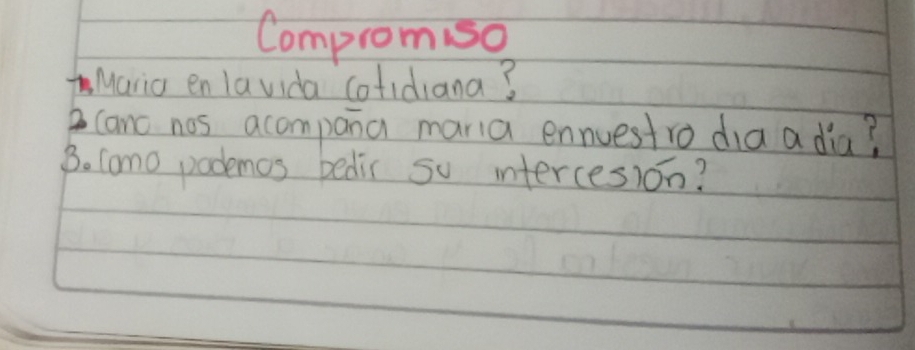 Compromiso
1. Maria en la vida cotidiana?
2. Como nos acompaña maria en nuestro dia a día?
3. Como podemos pedir su intercesión?